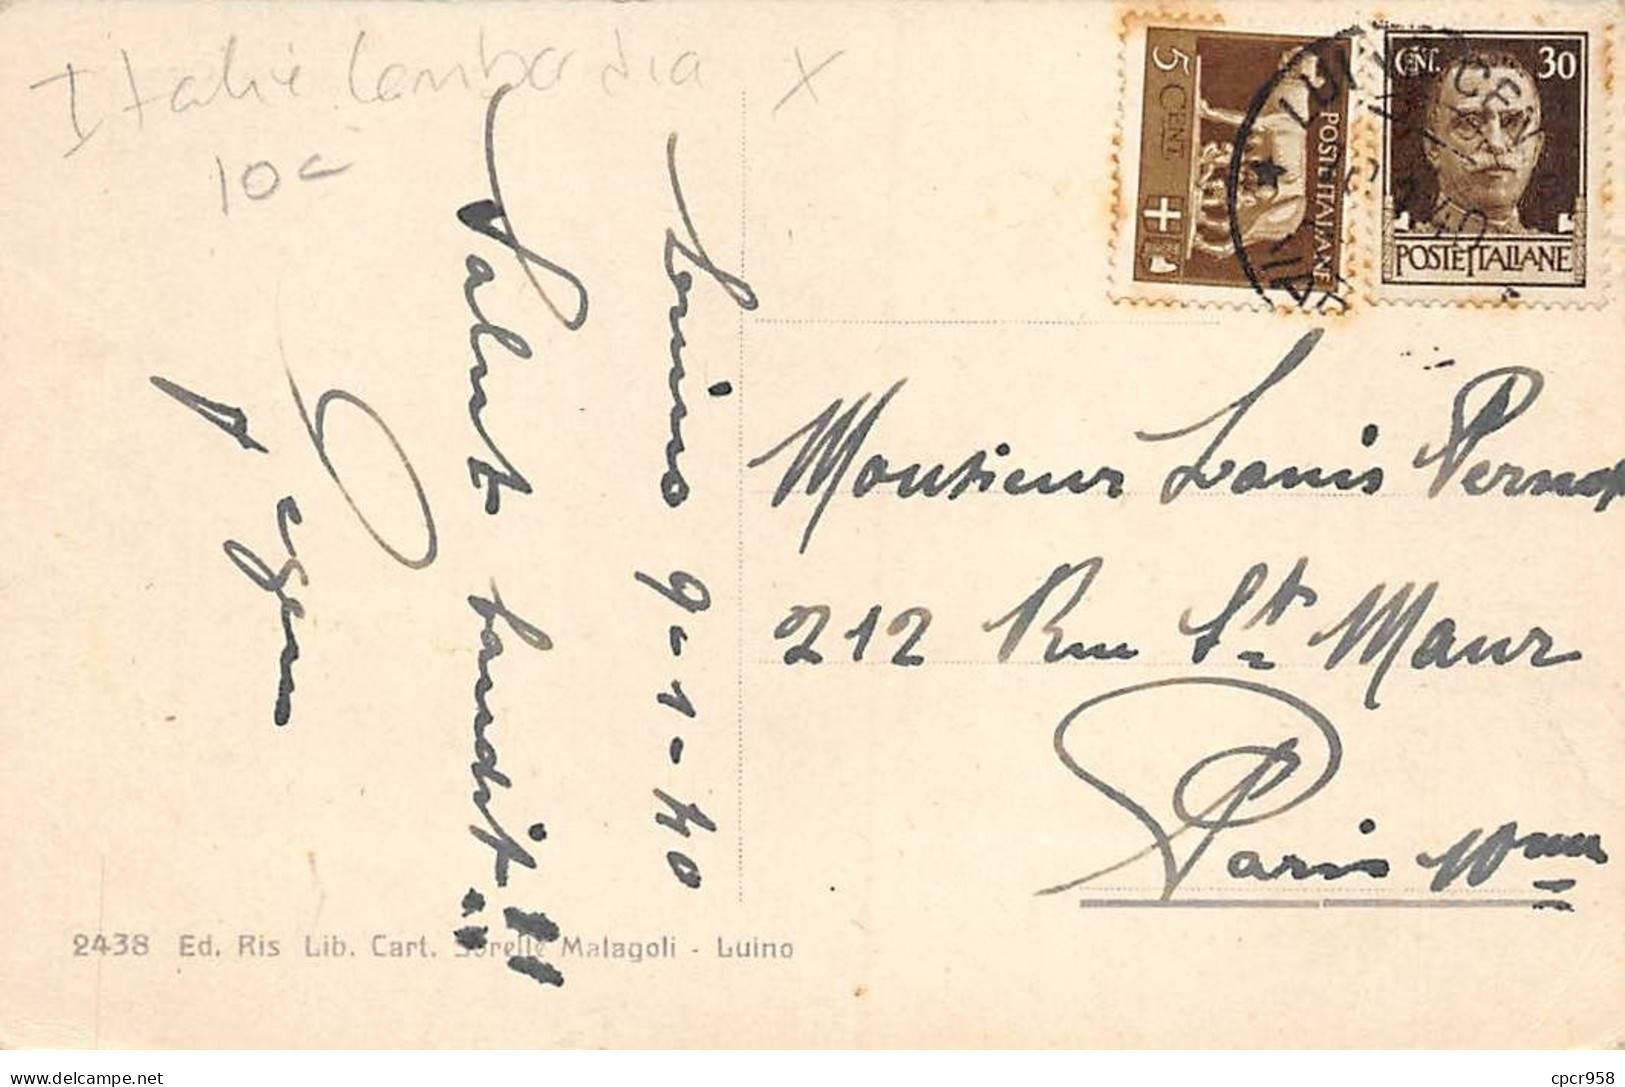 Italie Lombardia X
10c
Luino 9-1-40
Salut bandit!!
5 CENT.
POSTE ITALIANE
CENT. 30
POSTE ITALIANE
LUINO CEN
VAR
Monsieur Louis Pernot
212 Rue St Maur
Paris 10me
2438 Ed. Ris Lib. Cart. Sorelle Malagoli - Luino
delcampe.net
cpcr958